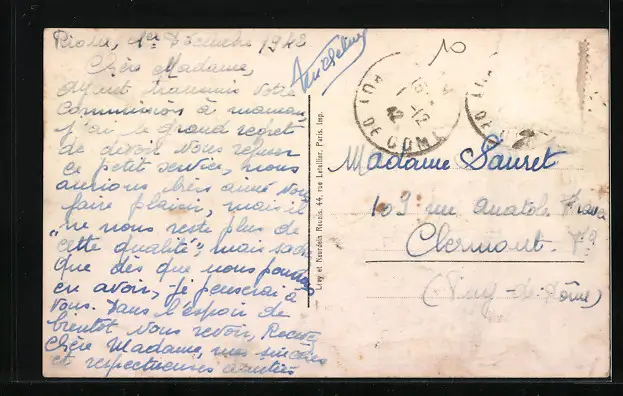 1er Décembre 1942
Chère Madame,
Ayant transmis votre
commission à maman,
j'ai le grand regret
de devoir vous refuser
ce petit service, nous
aurions bien aimé vous
faire plaisir, mais il
"ne nous reste plus de
cette qualité", mais
que dès que nous
en avoir, je penserai à
vous. Dans l'espoir de
bientôt vous revoir, Recevez
Chère Madame, mes sincères
et respectueuses amitiés
10
PUY
DE DOME
1-12
42
PUY
DE
Levy et Neurdein Réunis, 44, rue Letellier, Paris. Imp.
Madame Sauret
109 rue Anatole France
Clermont-Fd
(Puy-de-Dôme)